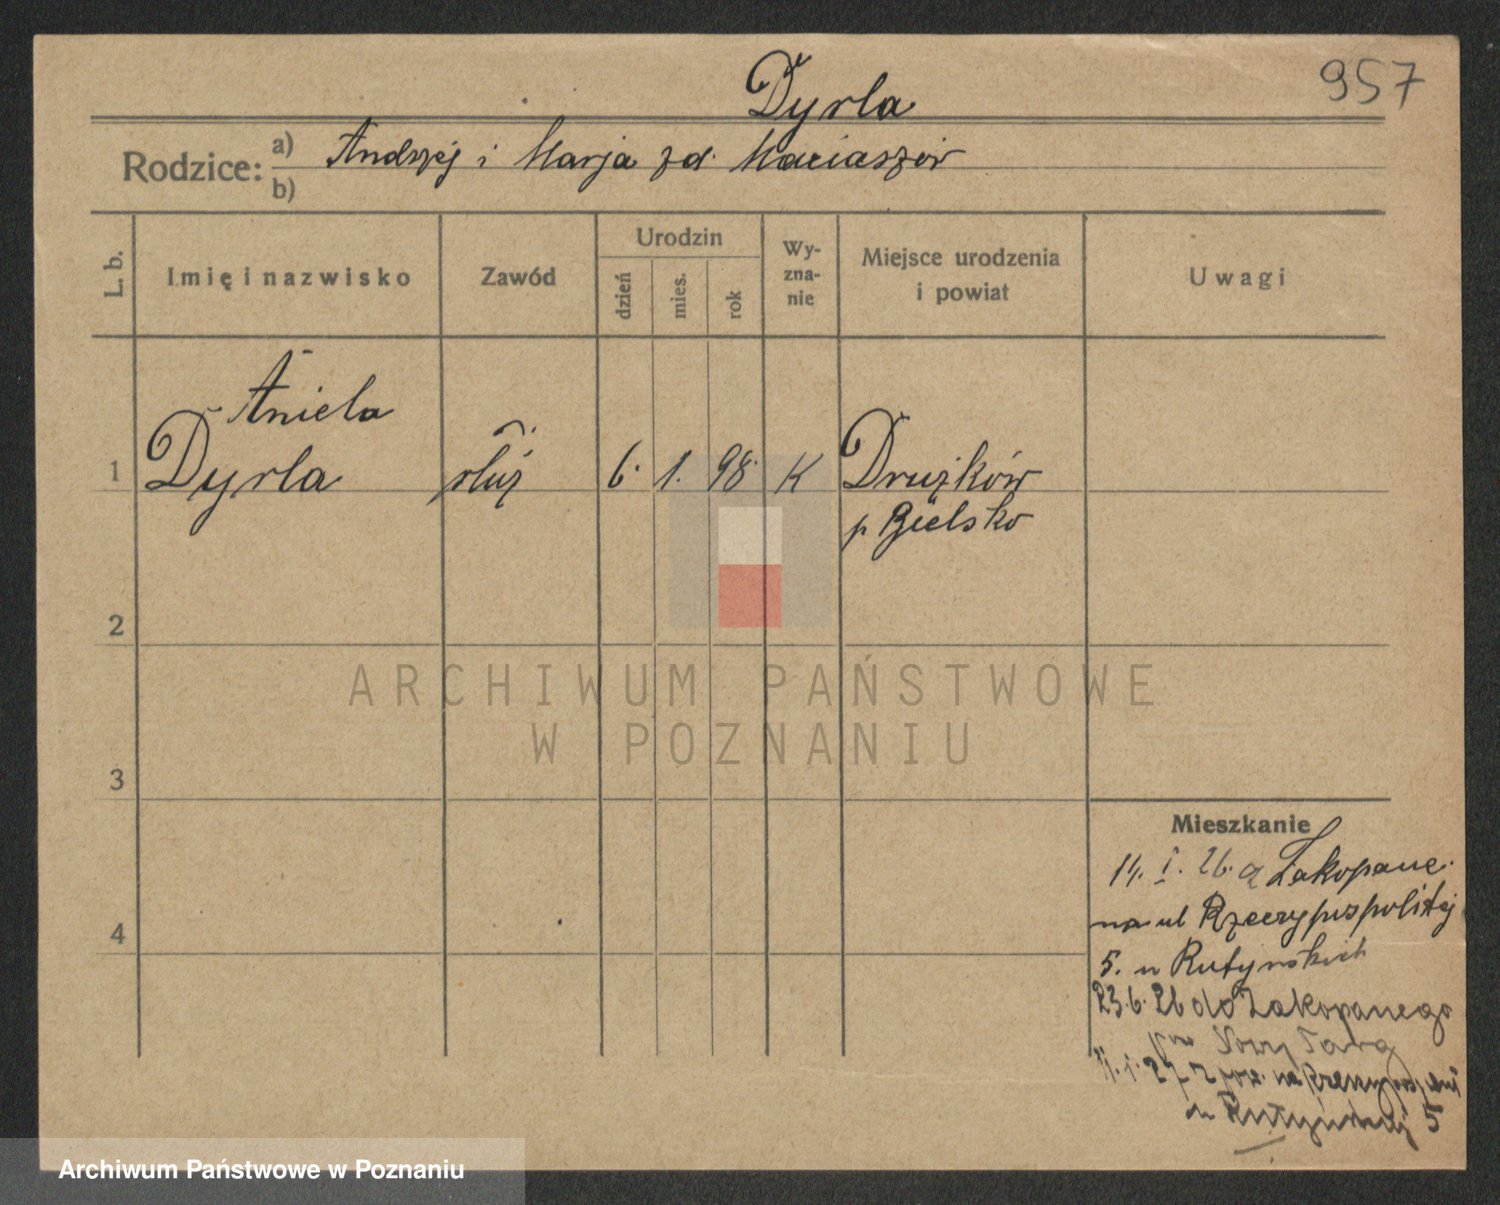 957
Dyrla
Rodzice: a) Andrzej i Marja zd. Maciaszów
b)
L. b.
Imię i nazwisko
Zawód
Urodzin
dzień
mies.
rok
Wy-
zna-
nie
Miejsce urodzenia
i powiat
Uwagi
Aniela
1 Dyrla służ 6. 1. 98. K Drużków
p Bielsko
2
ARCHIWUM PAŃSTWOWE
W POZNANIU
3
Mieszkanie
14. I. 26. z Zakopane.
na ul Rzeczypospolitej
4
5. u Rutyńskich
23.6.26 do Zakopanego
pow Nowy Targ
11.1.27 z na
u Rutyńskiej 5
Archiwum Państwowe w Poznaniu